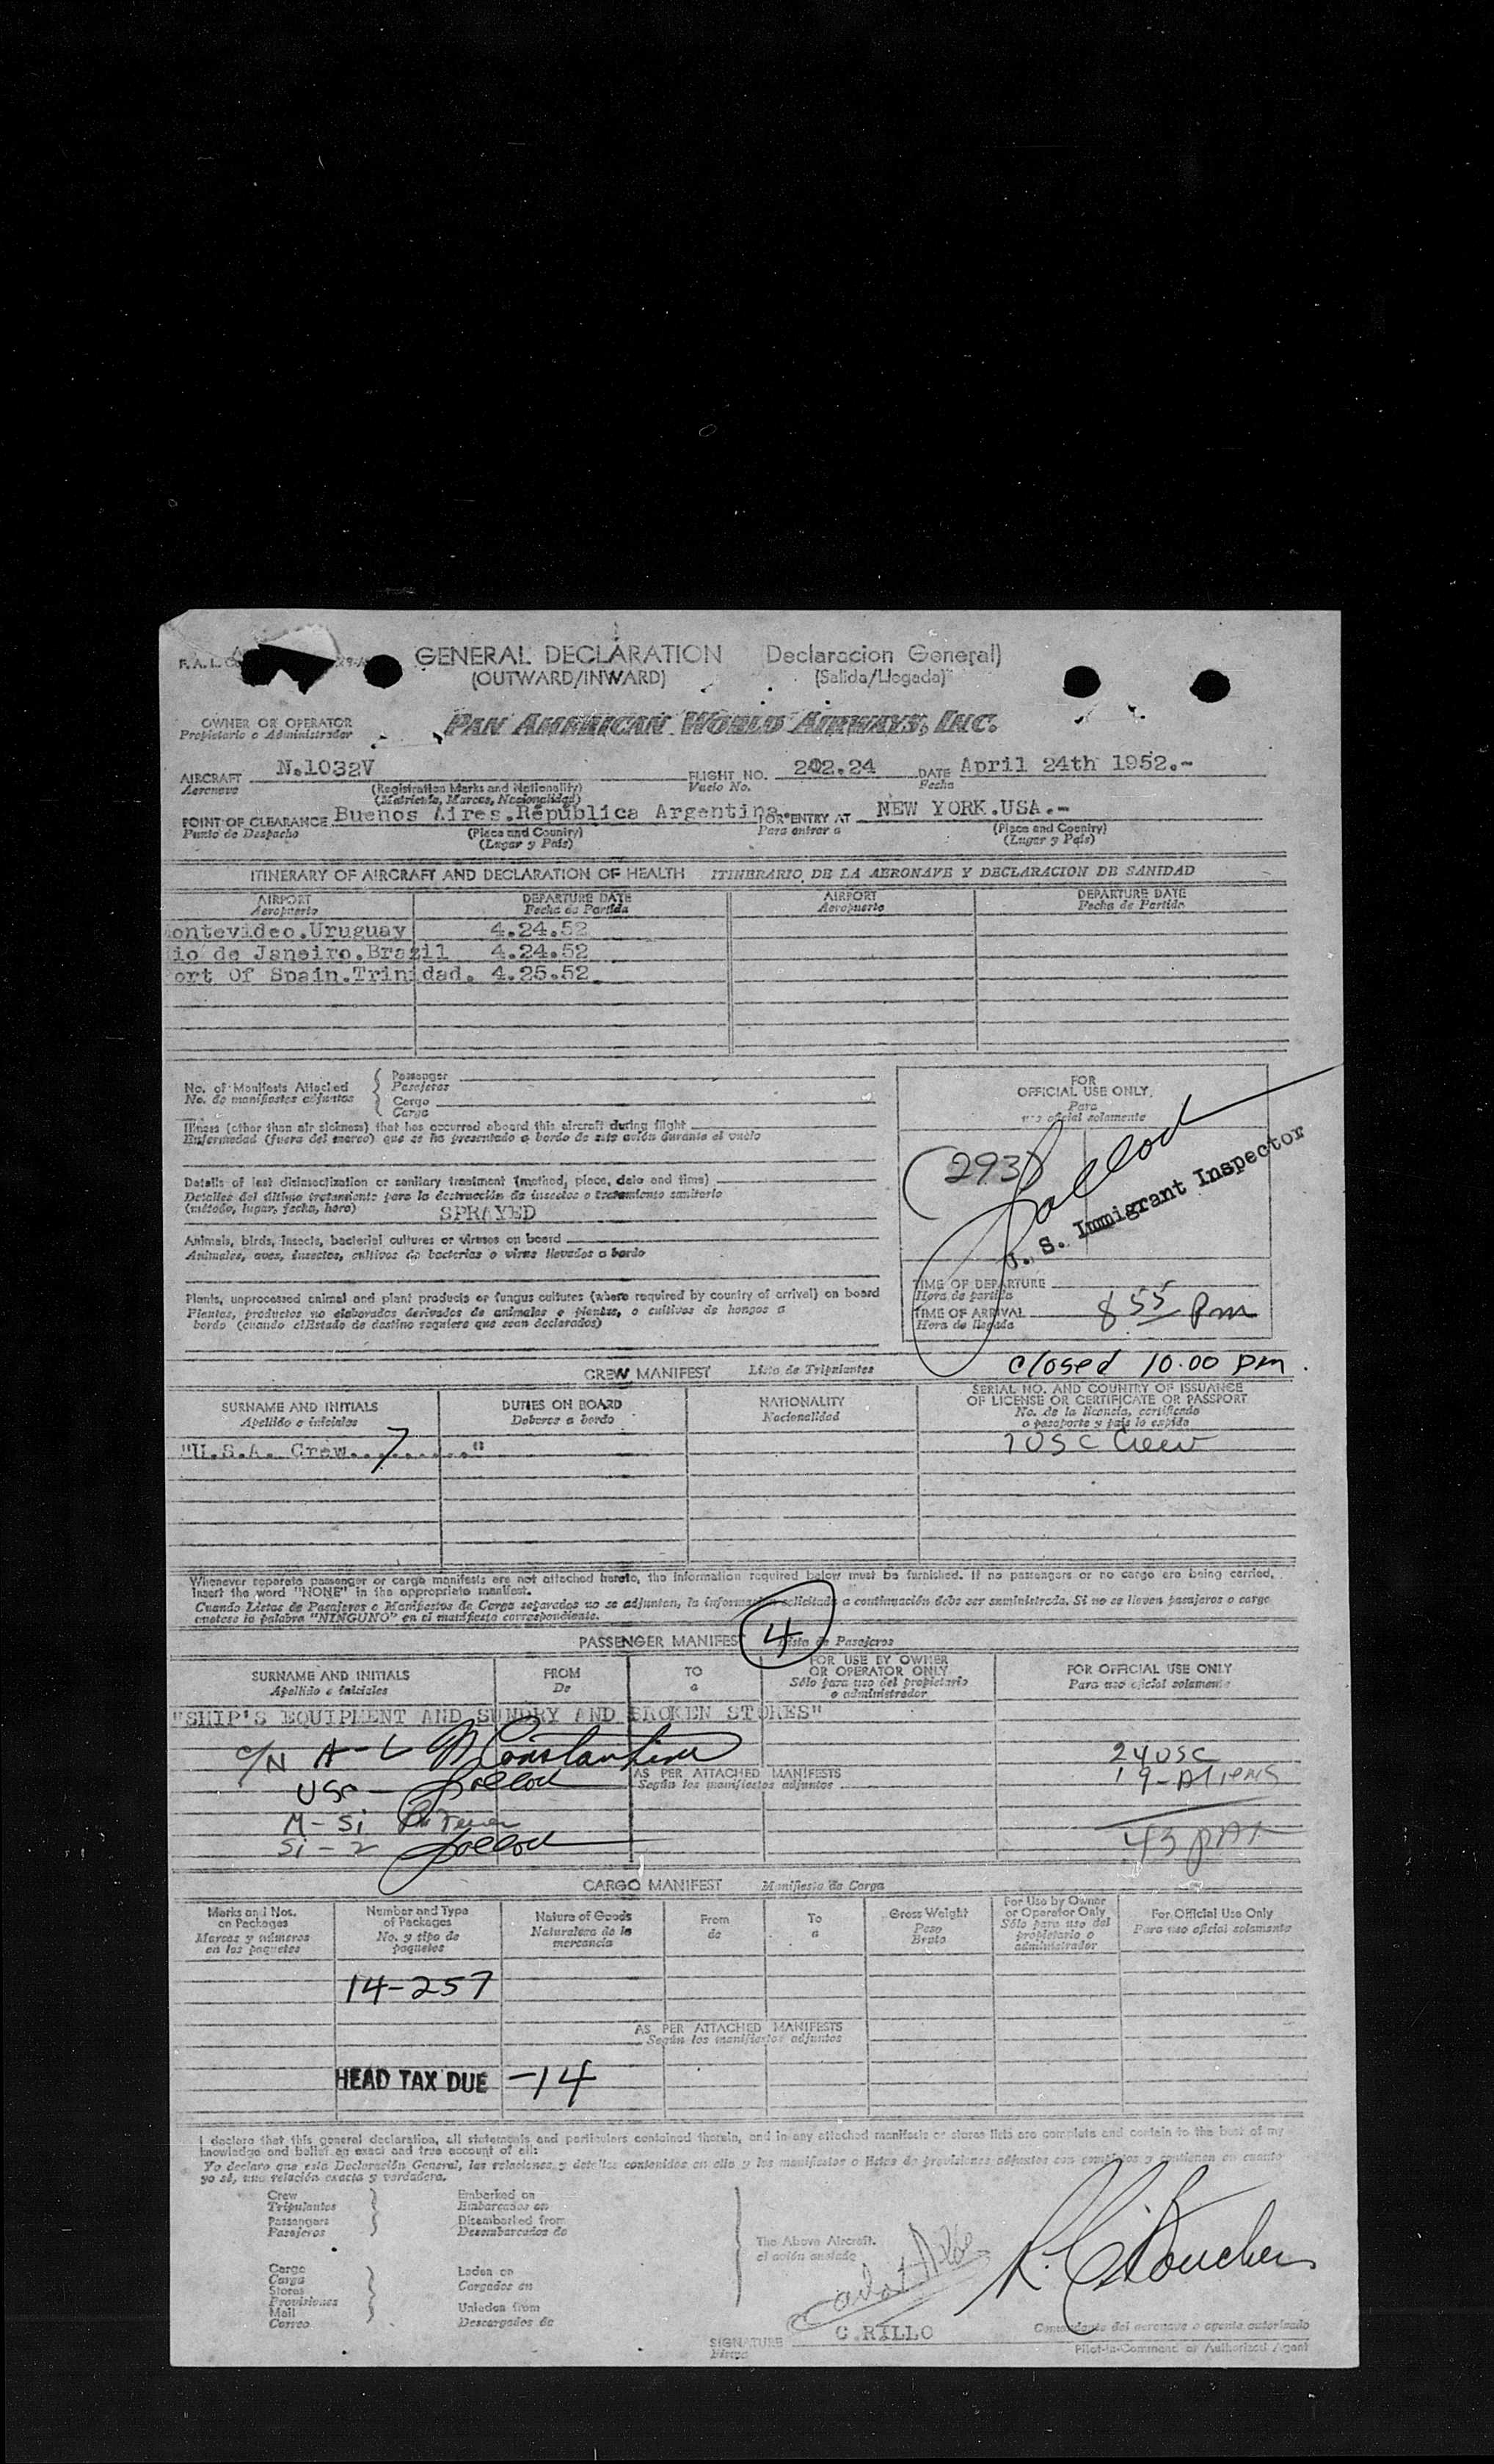 F. A. L.
GENERAL DECLARATION Declaracion General)
(OUTWARD/INWARD) (Salida/Llegada)
OWNER OR OPERATOR
Propietario o Administrador
PAN AMERICAN WORLD AIRWAYS, INC.
AIRCRAFT N.1032V FLIGHT NO. 202.24 DATE April 24th 1952.-
Aeronave (Registration Marks and Nationality) Vuelo No. Fecha
(Matricula, Marcas, Nacionalidad)
POINT OF CLEARANCE Buenos Aires.Républica Argentina FOR ENTRY AT NEW YORK.USA.-
Punto de Despacho (Place and Country) Para entrar a (Place and Country)
(Lugar y País) (Lugar y País)
ITINERARY OF AIRCRAFT AND DECLARATION OF HEALTH ITINERARIO DE LA AERONAVE Y DECLARACION DE SANIDAD
AIRPORT DEPARTURE DATE AIRPORT DEPARTURE DATE
Aeropuerto Fecha de Partida Aeropuerto Fecha de Partida
ontevideo.Uruguay 4.24.52
io de Janeiro.Brazil 4.24.52
ort Of Spain.Trinidad. 4.25.52
No. of Manifests Attached
No. de manifiestos adjuntos
Passenger
Pasajeros
Cargo
Carga
Illness (other than air sickness) that has occurred aboard this aircraft during flight
Enfermedad (fuera del mareo) que se ha presentado a bordo de este avión durante el vuelo
Details of last disinsectization or sanitary treatment (method, place, date and time)
Detalles del último tratamiento para la destrucción de insectos o tratamiento sanitario
(método, lugar, fecha, hora) SPRAYED
Animals, birds, insects, bacterial cultures or viruses on board
Animales, aves, insectos, cultivos de bacterias o virus llevados a bordo
Plants, unprocessed animal and plant products or fungus cultures (where required by country of arrival) on board
Plantas, productos no elaborados derivados de animales o plantas, o cultivos de hongos a
bordo (cuando el Estado de destino requiere que sean declarados)
FOR
OFFICIAL USE ONLY
Para
uso oficial solamente
293
U. S. Immigrant Inspector
TIME OF DEPARTURE
Hora de partida
TIME OF ARRIVAL 8 55 Pm
Hora de llegada
closed 10.00 pm.
CREW MANIFEST Lista de Tripulantes
SURNAME AND INITIALS DUTIES ON BOARD NATIONALITY SERIAL NO. AND COUNTRY OF ISSUANCE
OF LICENSE OR CERTIFICATE OR PASSPORT
Apellido e iniciales Deberes a bordo Nacionalidad No. de la licencia, certificado
o pasaporte y país lo expide
"U.S.A. Crew...7......." 7 USC Crew
Whenever separate passenger or cargo manifests are not attached hereto, the information required below must be furnished. If no passengers or no cargo are being carried,
insert the word "NONE" in the appropriate manifest.
Cuando Listas de Pasajeros o Manifiestos de Carga separados no se adjuntan, la información solicitada a continuación debe ser suministrada. Si no se llevan pasajeros o carga
anotese la palabra "NINGUNO" en el manifiesto correspondiente.
PASSENGER MANIFEST 4 Lista de Pasajeros
SURNAME AND INITIALS FROM TO FOR USE BY OWNER
OR OPERATOR ONLY FOR OFFICIAL USE ONLY
Apellido e iniciales De a Sólo para uso del propietario
o administrador Para uso oficial solamente
"SHIP'S EQUIPMENT AND SUNDRY AND BROKEN STORES"
C/N A-L Constantine 24 USC
USC - AS PER ATTACHED MANIFESTS 19 - Aliens
Según los manifiestos adjuntos
M - Si
Si - 2 43 pax
CARGO MANIFEST Manifiesto de Carga
Marks and Nos.
on Packages
Marcas y números
en los paquetes
Number and Type
of Packages
No. y tipo de
paquetes
Nature of Goods
Naturaleza de la
mercancia
From
de
To
a
Gross Weight
Peso
Bruto
For Use by Owner
or Operator Only
Sólo para uso del
propietario o
administrador
For Official Use Only
Para uso oficial solamente
14-257
AS PER ATTACHED MANIFESTS
Según los manifiestos adjuntos
HEAD TAX DUE -14
I declare that this general declaration, all statements and particulars contained therein, and in any attached manifests or stores lists are complete and contain to the best of my
knowledge and belief an exact and true account of all:
Yo declaro que esta Declaración General, las relaciones y detalles contenidos en ella y los manifiestos o listas de provisiones adjuntos son completos y contienen en cuanto
yo sé, una relación exacta y verdadera.
Crew Embarked on
Tripulantes Embarcados en
Passengers Disembarked from
Pasajeros Desembarcados de
The Above Aircraft.
el avión anotado
Cargo Laden on
Carga Cargados en
Stores
Provisiones Unladen from
Mail Descargados de
Correo
SIGNATURE C.RILLO
Firma
Comandante del aeronave o agente autorizado
Pilot-in-Command or Authorized Agent